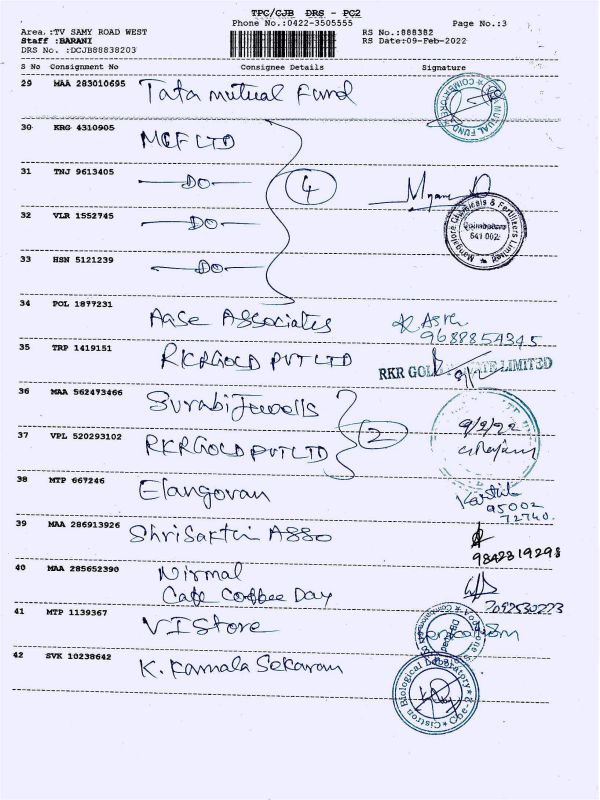 TPC/CJB DRS - PC2
Phone No.:0422-3505555
Page No.:3
Area.:TV SAMY ROAD WEST
Staff :BARANI
DRS No. :DCJB88838203
RS No.:888382
RS Date:09-Feb-2022
S No Consignment No Consignee Details Signature
29 MAA 283010695 Tata mutual Fund
COIMBATORE MUTUAL FUND
30 KRG 4310905 MCF LTD
31 TNJ 9613405 DO 4
32 VLR 1552745 DO
Mangalore Chemicals & Fertilizers Limited
Coimbatore
641 002
33 HSN 5121239 DO
34 POL 1877231 Aase Associates
9688854345
35 TRP 1419151 RKRGOLD PVT LTD
RKR GOLD LIMITED
36 MAA 562473466 Surabi Jewells
9/2/22
37 VPL 520293102 RKRGOLD PVT LTD 2
38 MTP 667246 Elangovan
Karthik
95002
72740.
39 MAA 286913926 Shri Sakthi Asso
9842819298
40 MAA 285652390 Nirmal
Cafe Coffee Day
7092530223
41 MTP 1139367 VI Store
42 SVK 10238642 K. Kamala Sekaran
Cistron Biological Laboratory Cbe-2